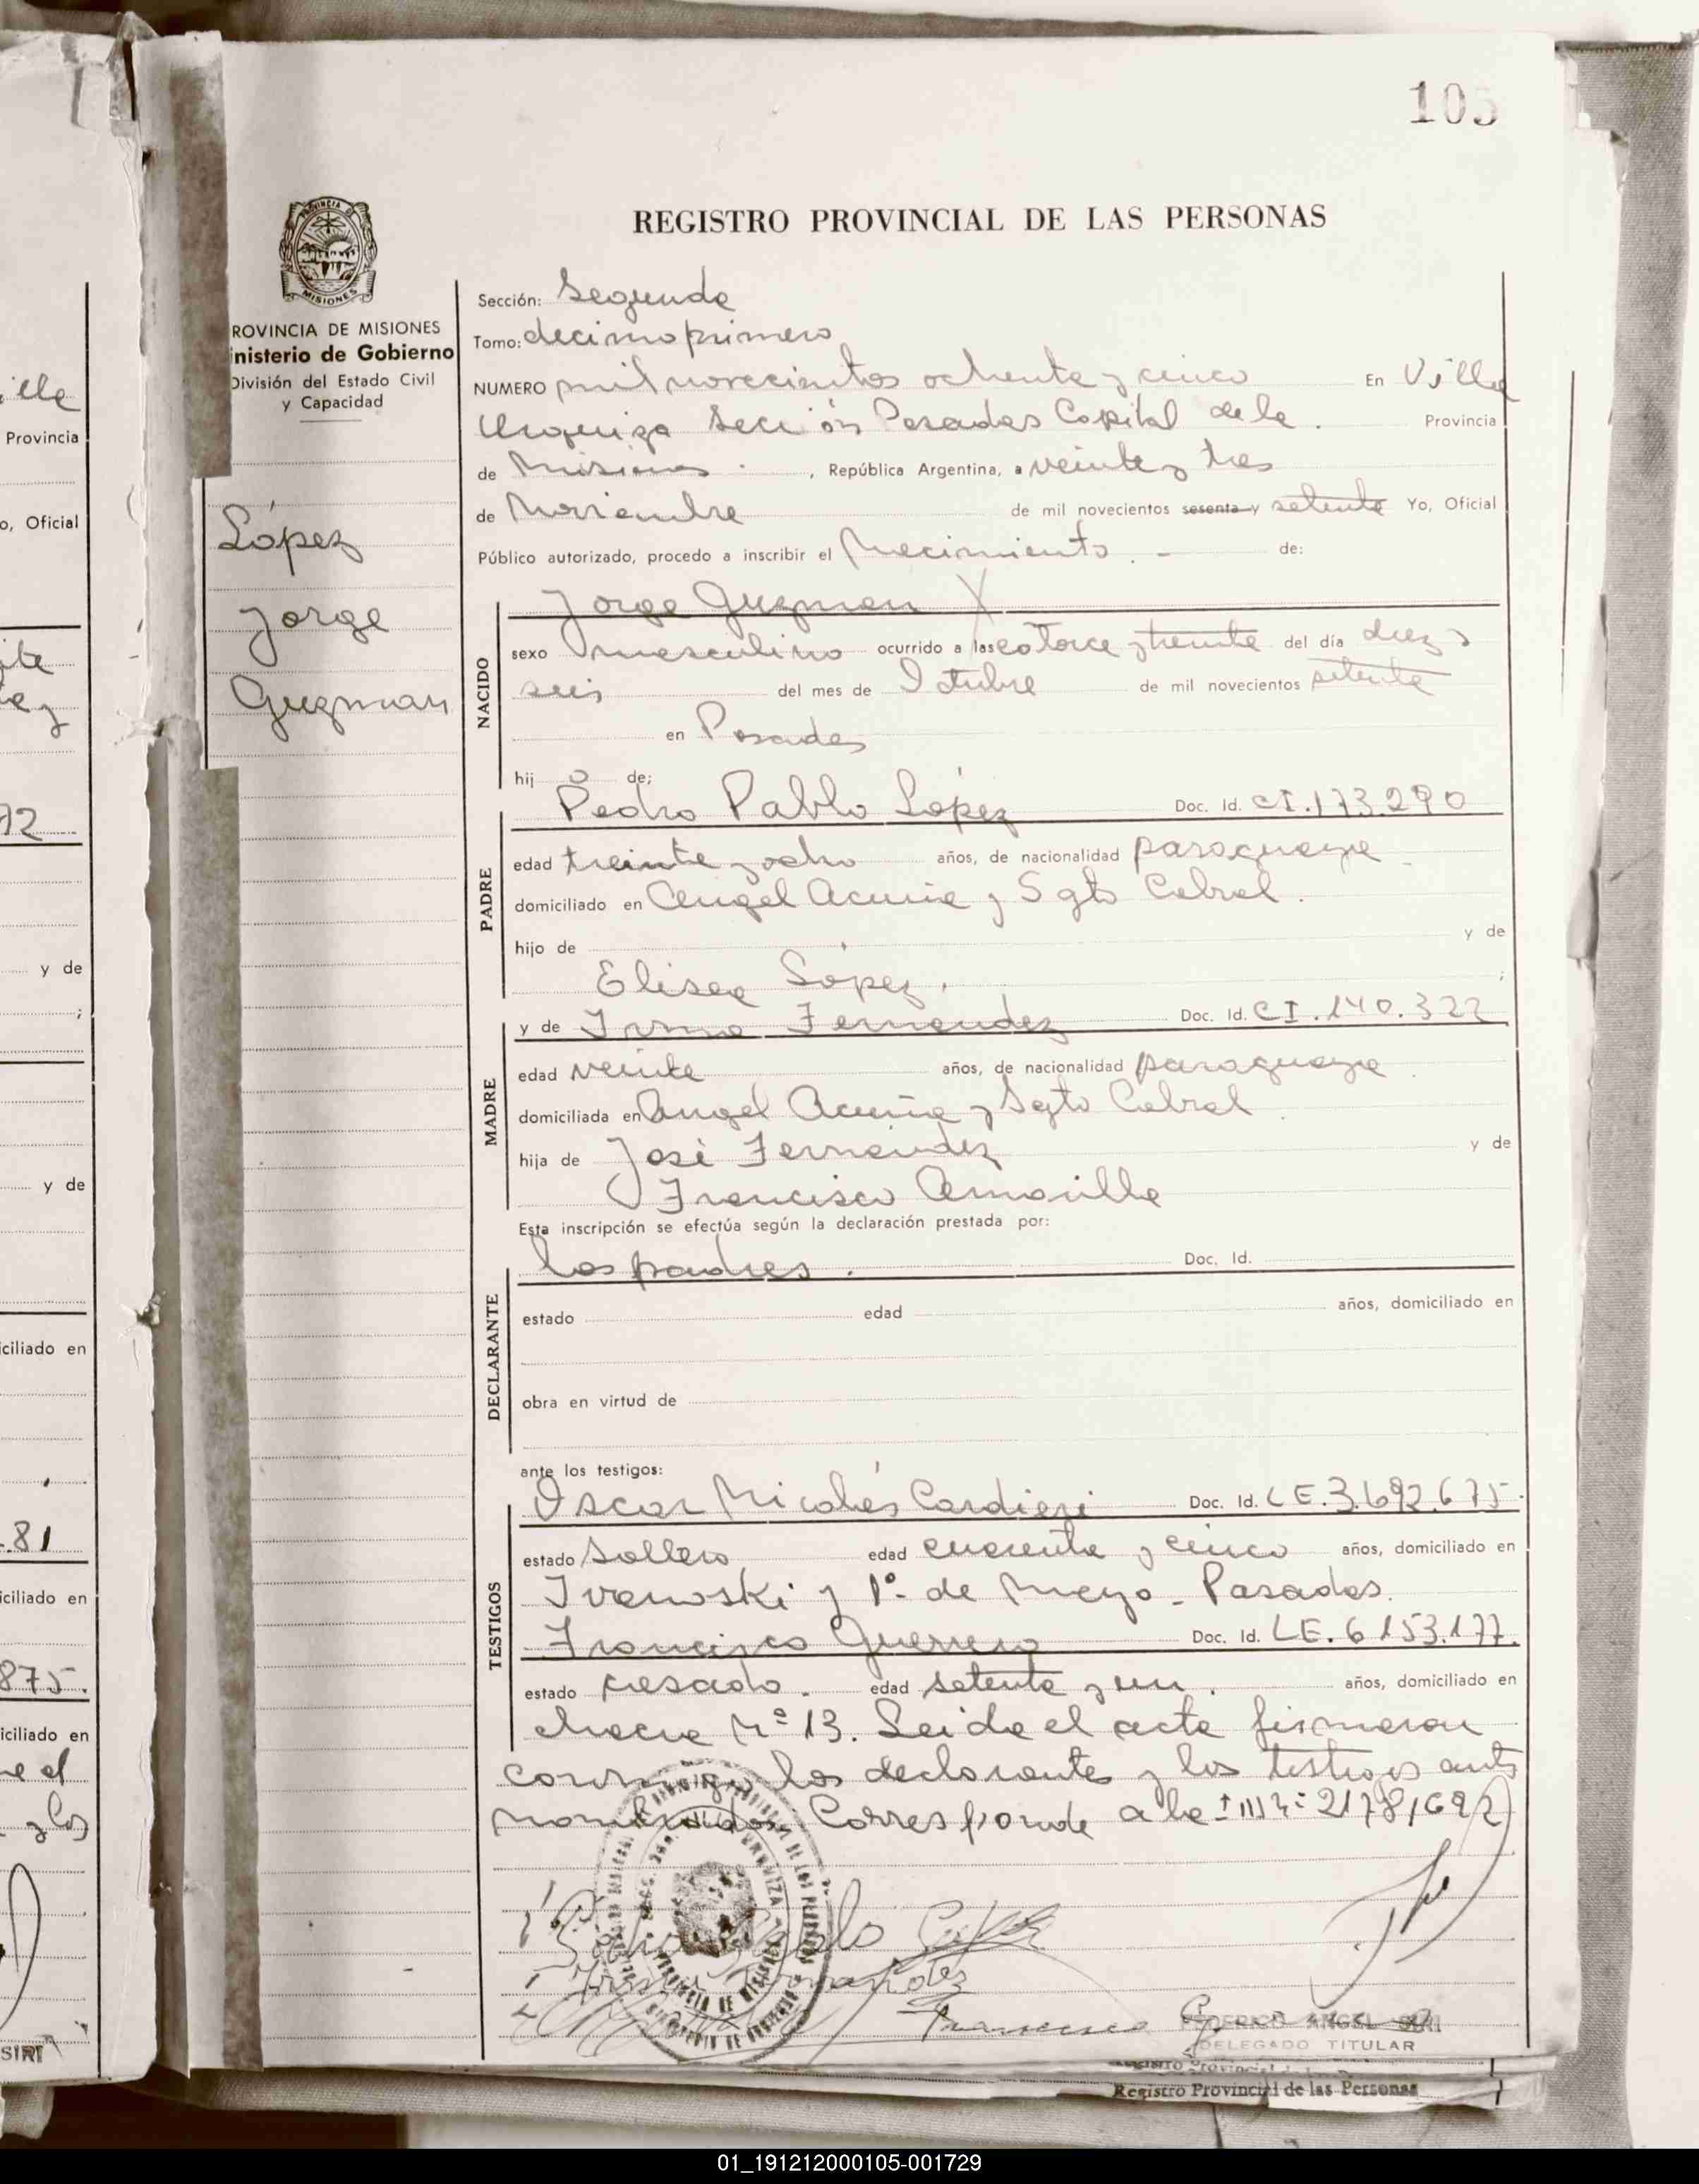 105
REGISTRO PROVINCIAL DE LAS PERSONAS
PROVINCIA DE
MISIONES
ROVINCIA DE MISIONES
nisterio de Gobierno
División del Estado Civil
y Capacidad
López
Jorge
Guzman
Sección: Segunda
Tomo: decimo primero
NUMERO mil novecientos ochenta y cinco En Villa
Urquiza Sección Posadas Capital de la . Provincia
de Misiones . , República Argentina, a veinte y tres
de Noviembre de mil novecientos sesenta y setenta Yo, Oficial
Público autorizado, procedo a inscribir el Nacimiento . - de:
NACIDO
Jorge Guzman X
sexo masculino ocurrido a las catorce y treinta del día diez y
seis del mes de Octubre de mil novecientos setenta
en Posadas
hij o de;
PADRE
Pedro Pablo López Doc. Id. CI.173.290
edad treinta y ocho años, de nacionalidad paraguaya
domiciliado en Angel Acuña y Sgto Cabral .
hijo de y de
Elisea López . ;
MADRE
y de Irma Fernandez Doc. Id. CI.140.322
edad veinte años, de nacionalidad paraguaya .
domiciliada en Angel Acuña y Sgto Cabral .
hija de José Fernández y de
Francisca Amarilla
Esta inscripción se efectúa según la declaración prestada por:
DECLARANTE
los padres . Doc. Id.
estado edad años, domiciliado en
obra en virtud de
ante los testigos:
TESTIGOS
Oscar Nicolás Cardieri Doc. Id. LE.3.692.675.
estado Soltero edad cuarenta y cinco años, domiciliado en
Ivanoski y 1º de Mayo - Posadas.
Francisco Guerrero Doc. Id. LE.6153.177.
estado casado . edad setenta y un . años, domiciliado en
chacra Nº 13. Leida el acta firmaron
conmigo los declarantes y los testigos ante
nombrados. Corresponde a la 21781692
Fernandez
Francisco
FEDERICO ANGEL SIRI
DELEGADO TITULAR
Registro Provincial de las Personas
ille
Provincia
o, Oficial
y de
;
y de
.81
iciliado en
iciliado en
875.
iciliado en
SIRI
01_191212000105-001729